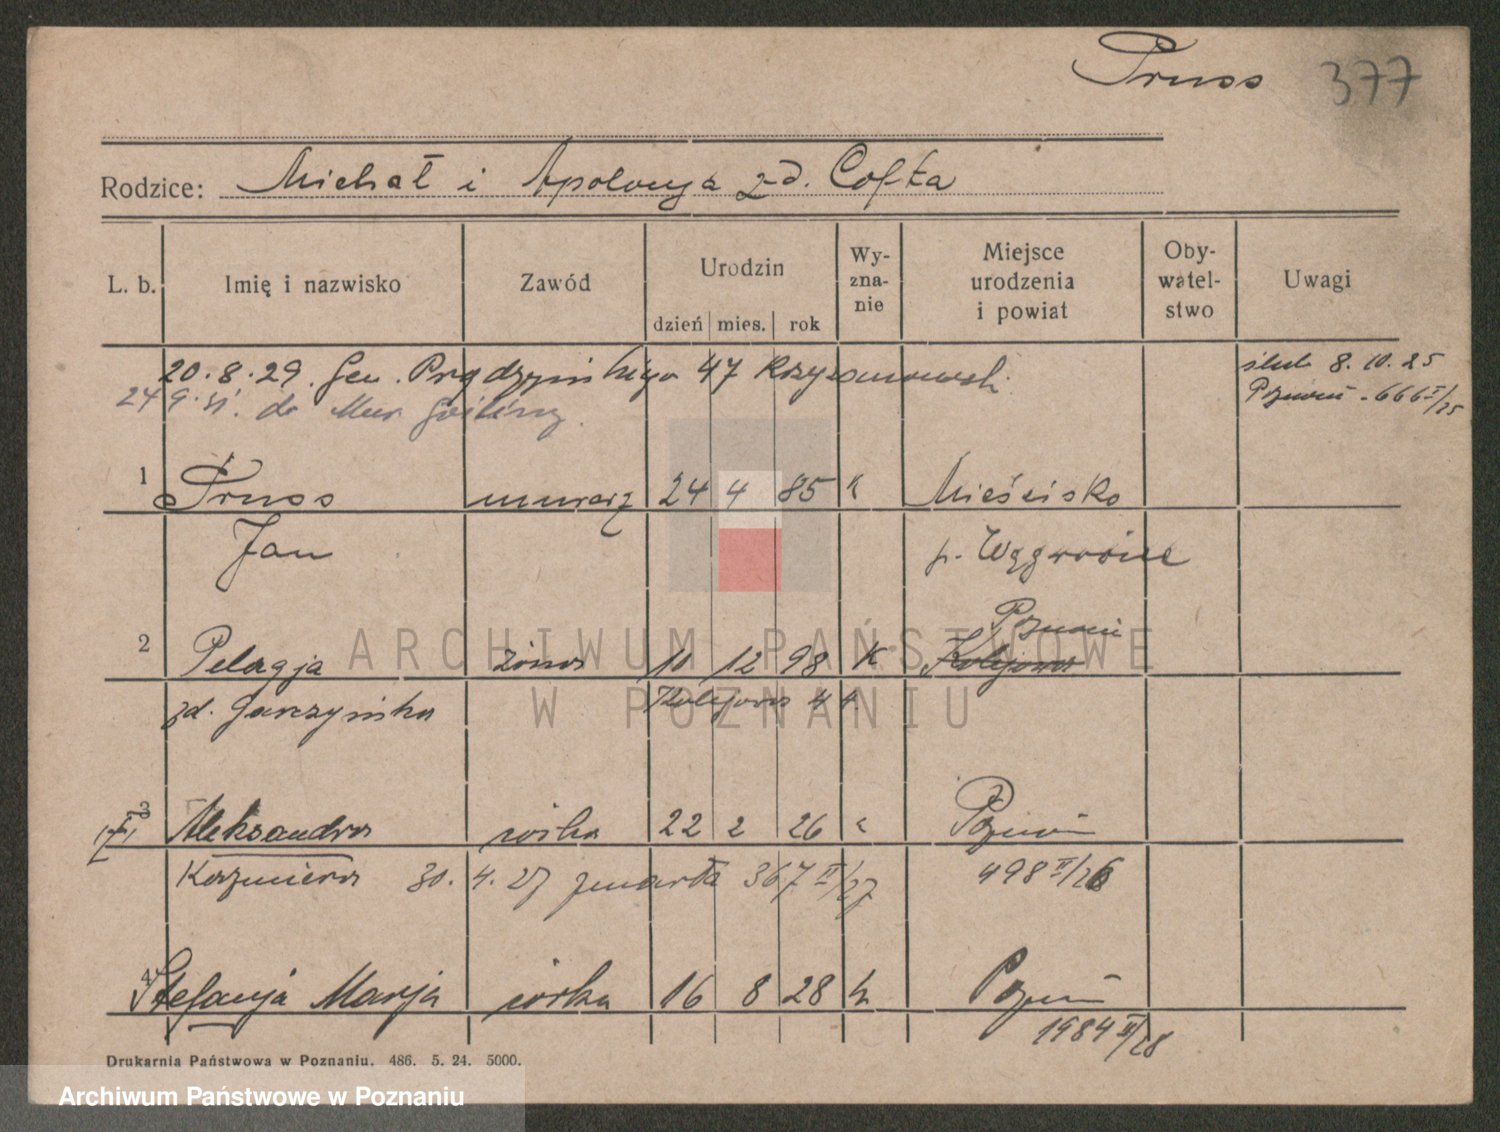 Pruss 377
Rodzice: Michał i Apolonja zd. Cofta
L. b. Imię i nazwisko Zawód Urodzin dzień mies. rok Wy-zna-nie Miejsce urodzenia i powiat Oby-watel-stwo Uwagi
20.8.29. Gen. Prądzyńskiego 47 ślub 8.10.25
24 9. 31. do Mur. Gośliny. Poznań - 666 II/25
1 Pruss murarz 24 4 85 k Mieścisko
Jan p. Wągrowiec
Poznań
2 Pelagja żona 10 12 98 k Kolejowa
zd. Garczyńska Kolejowa 4
3 Aleksandra córka 22 2 26 Poznań
Kazimiera 30. 4. 27 zmarła 367 II/27 498 II/26
4 Stefanja Marja córka 16 8 28 k Poznań
1984 II/28
Drukarnia Państwowa w Poznaniu. 486. 5. 24. 5000.
ARCHIWUM PAŃSTWOWE
W POZNANIU
Archiwum Państwowe w Poznaniu